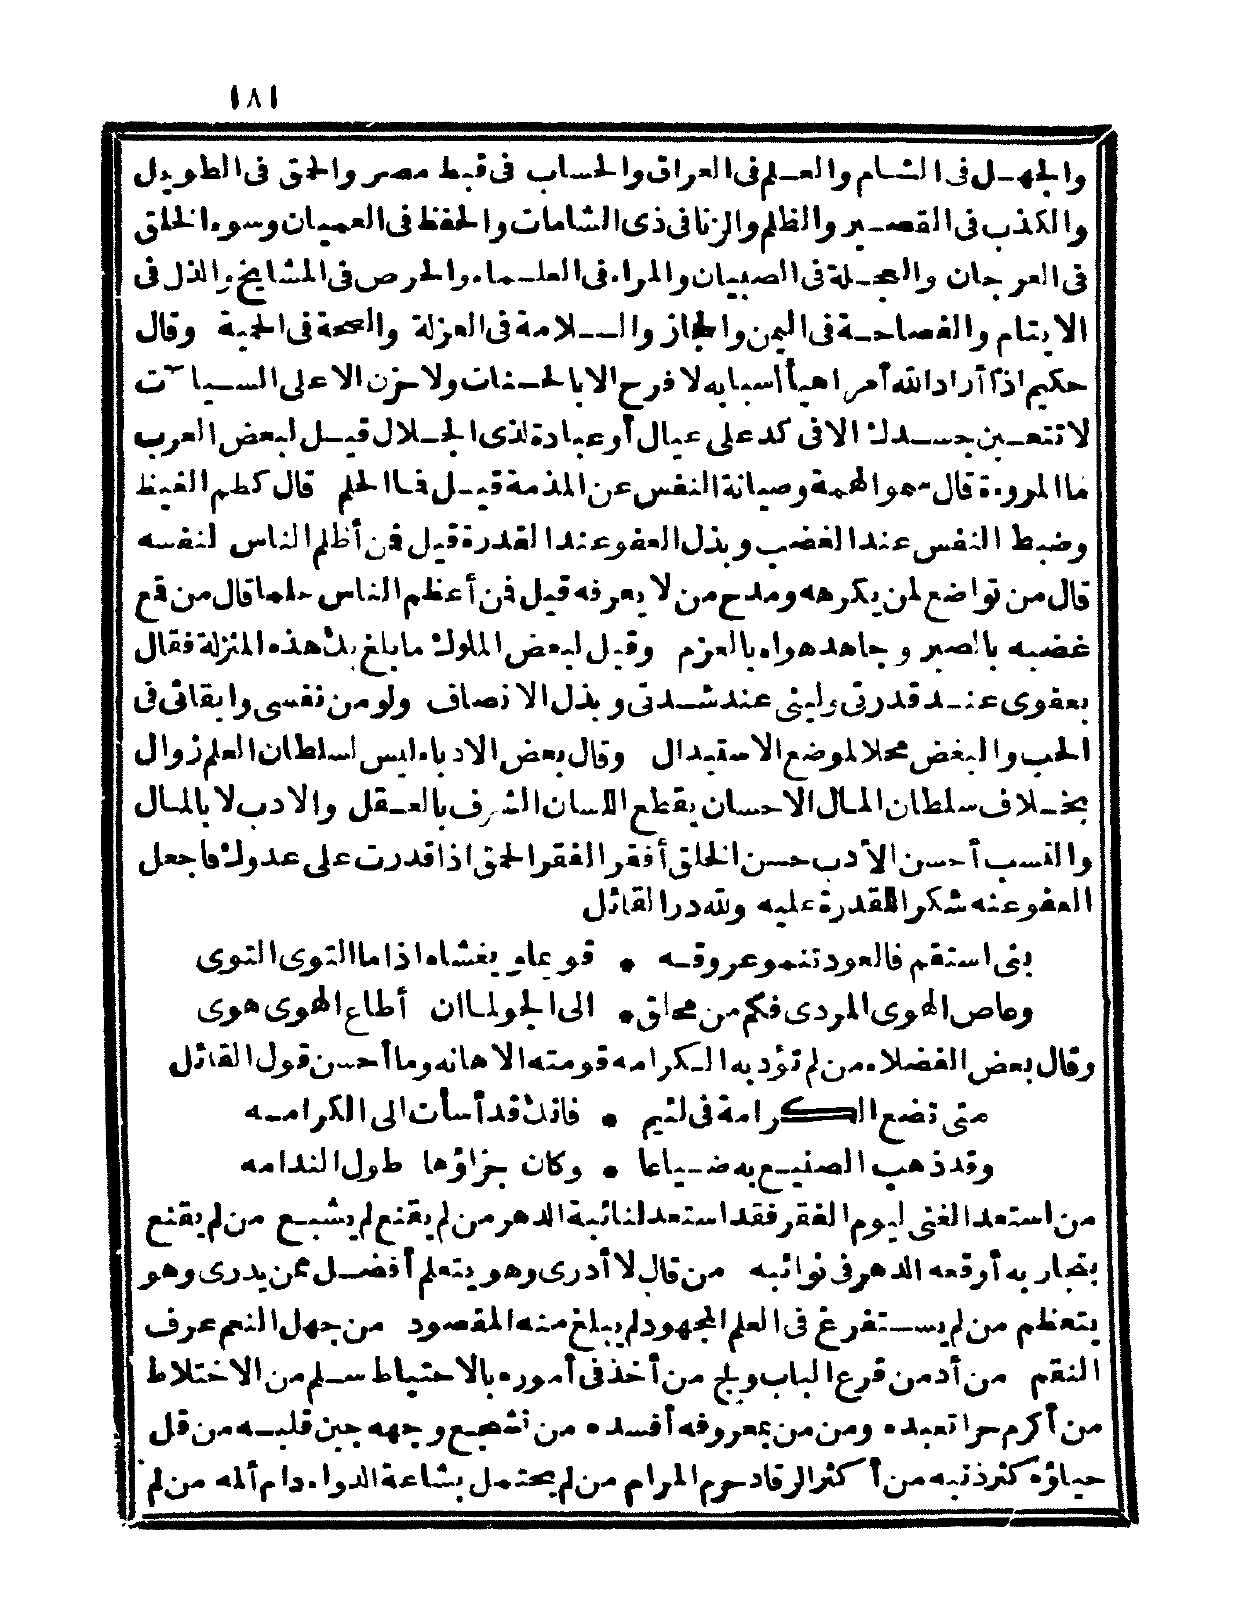 ١٨١
والجهل فى الشام والعلم فى العراق والحساب فى قبط مصر والحمق فى الطويل
والكذب فى القصير والظلم والزنا فى ذى الشامات والحفظ فى العميان وسوء الخلق
فى العرجان والعجلة فى الصبيان والمراء فى العلماء والحرص فى المشايخ والذل فى
الايتام والفصاحة فى اليمن والحجاز والسلامة فى العزلة والصحة فى الحمية وقال
حكيم اذا أراد الله أمرا هيأ أسبابه لا فرح الا بالحسنات ولا حزن الا على السيآت
لا تتعبن جسدك الا فى كد على عيال أو عبادة لذى الجلال قيل لبعض العرب
ما المروءة قال سموا الهمة وصيانة النفس عن المذمة قيل فما الحلم قال كظم الغيظ
وضبط النفس عند الغضب وبذل العفو عند القدرة قيل فمن أظلم الناس لنفسه
قال من تواضع لمن يكرهه ومدح من لا يعرفه قيل فمن أعظم الناس حلما قال من قمع
غضبه بالصبر وجاهد هواه بالعزم وقيل لبعض الملوك ما بلغ بك هذه المنزلة فقال
بعفوى عند قدرتى ولينى عند شدتى وبذل الانصاف ولو من نفسى وابقائى فى
الحب والبغض محلا لموضع الاستبدال وقال بعض الادباء ليس لسلطان العلم زوال
بخلاف سلطان المال الاحسان يقطع اللسان الشرف بالعقل والادب لا بالمال
والنسب أحسن الأدب حسن الخلق أفقر الفقر الحمق اذا قدرت على عدوك فاجعل
العفو عنه شكرا للقدرة عليه ولله در القائل
بنى استقم فالعود تنمو عروقه • قويما ويغشاه اذا ما التوى التوى
وعاص الهوى المردى فكم من محلق • الى الجو لما ان أطاع الهوى هوى
وقال بعض الفضلاء من لم تؤدبه الكرامه قومته الاهانه وما أحسن قول القائل
متى تضع الكرامة فى لئيم • فانك قد أسأت الى الكرامه
وقد ذهب الصنيع به ضياعا • وكان جزاؤها طول الندامه
من استعد الغنى ليوم الفقر فقد استعد لنائبة الدهر من لم يقنع لم يشبع من لم يقنع
بتجاربه أوقعه الدهر فى نوائبه من قال لا أدرى وهو يتعلم أفضل ممن يدرى وهو
يتعظم من لم يستفرغ فى العلم المجهود لم يبلغ منه المقصود من جهل النعم عرف
النقم من أدمن قرع الباب ولج من أخذ فى أموره بالاحتياط سلم من الاختلاط
من أكرم حرا تعبده ومن من بمعروفه أفسده من تشجع وجهه جبن قلبه من قل
حياؤه كثر ذنبه من أكثر الرقاد حرم المرام من لم يحتمل بشاعة الدواء دام ألمه من لم